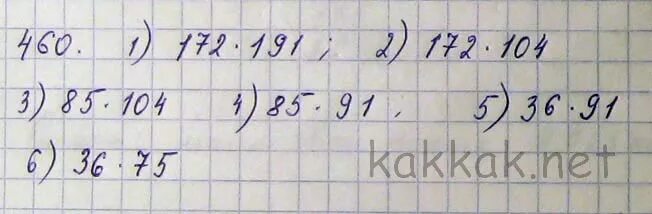 460. 1) 172·191; 2) 172·104
3) 85·104 4) 85·91. 5) 36·91
6) 36·75 kakkak.net